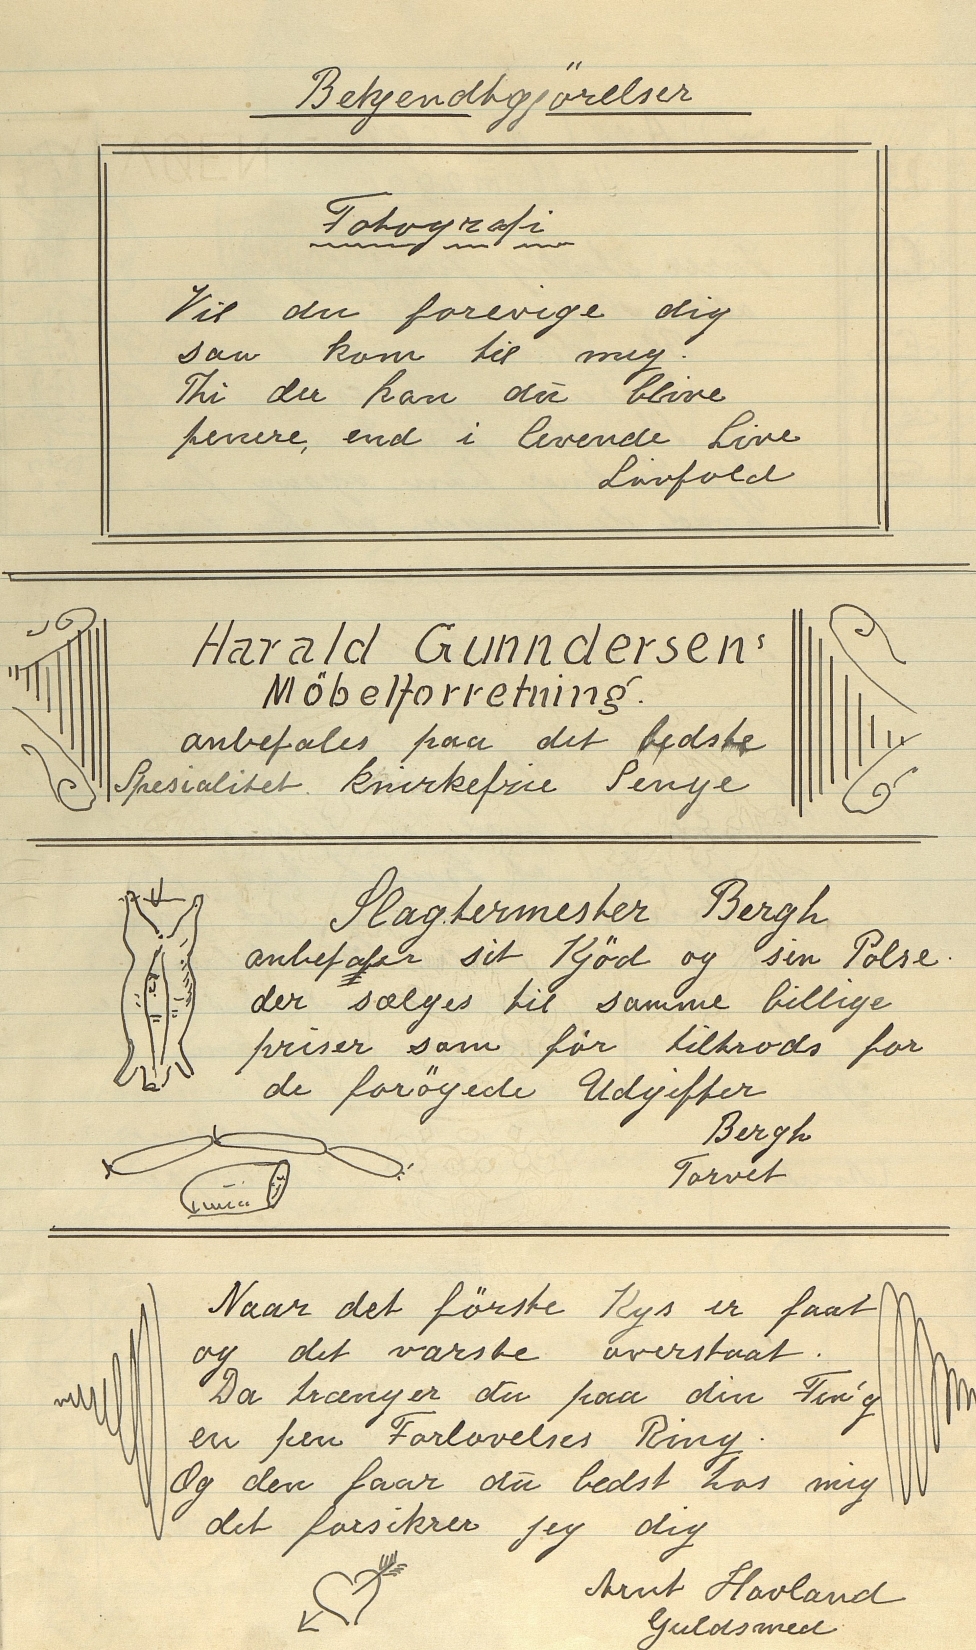 Bekjendtgjörelser
Fotografi
Vil du forevige dig
saa kom til mig.
Thi der kan du blive
penere, end i levende Live
Linfold
Harald Gunndersen's
Möbelforretning.
anbefales paa det bedste
Spesialitet. knirkefrie Senge
Slagtermester Bergh
anbefaler sit Kjöd og sin Pölse.
der sælges til samme billige
priser som för tiltrods for
de foröyede Udgifter
Bergh
Torvet
Naar det förste Kys er faat
og det varste overstaat.
Da trænger du paa din Fing
en pen Forlovelses Ring.
Og den faar du bedst hos mig
det forsikrer jeg dig
Arnt Havland
Guldsmed